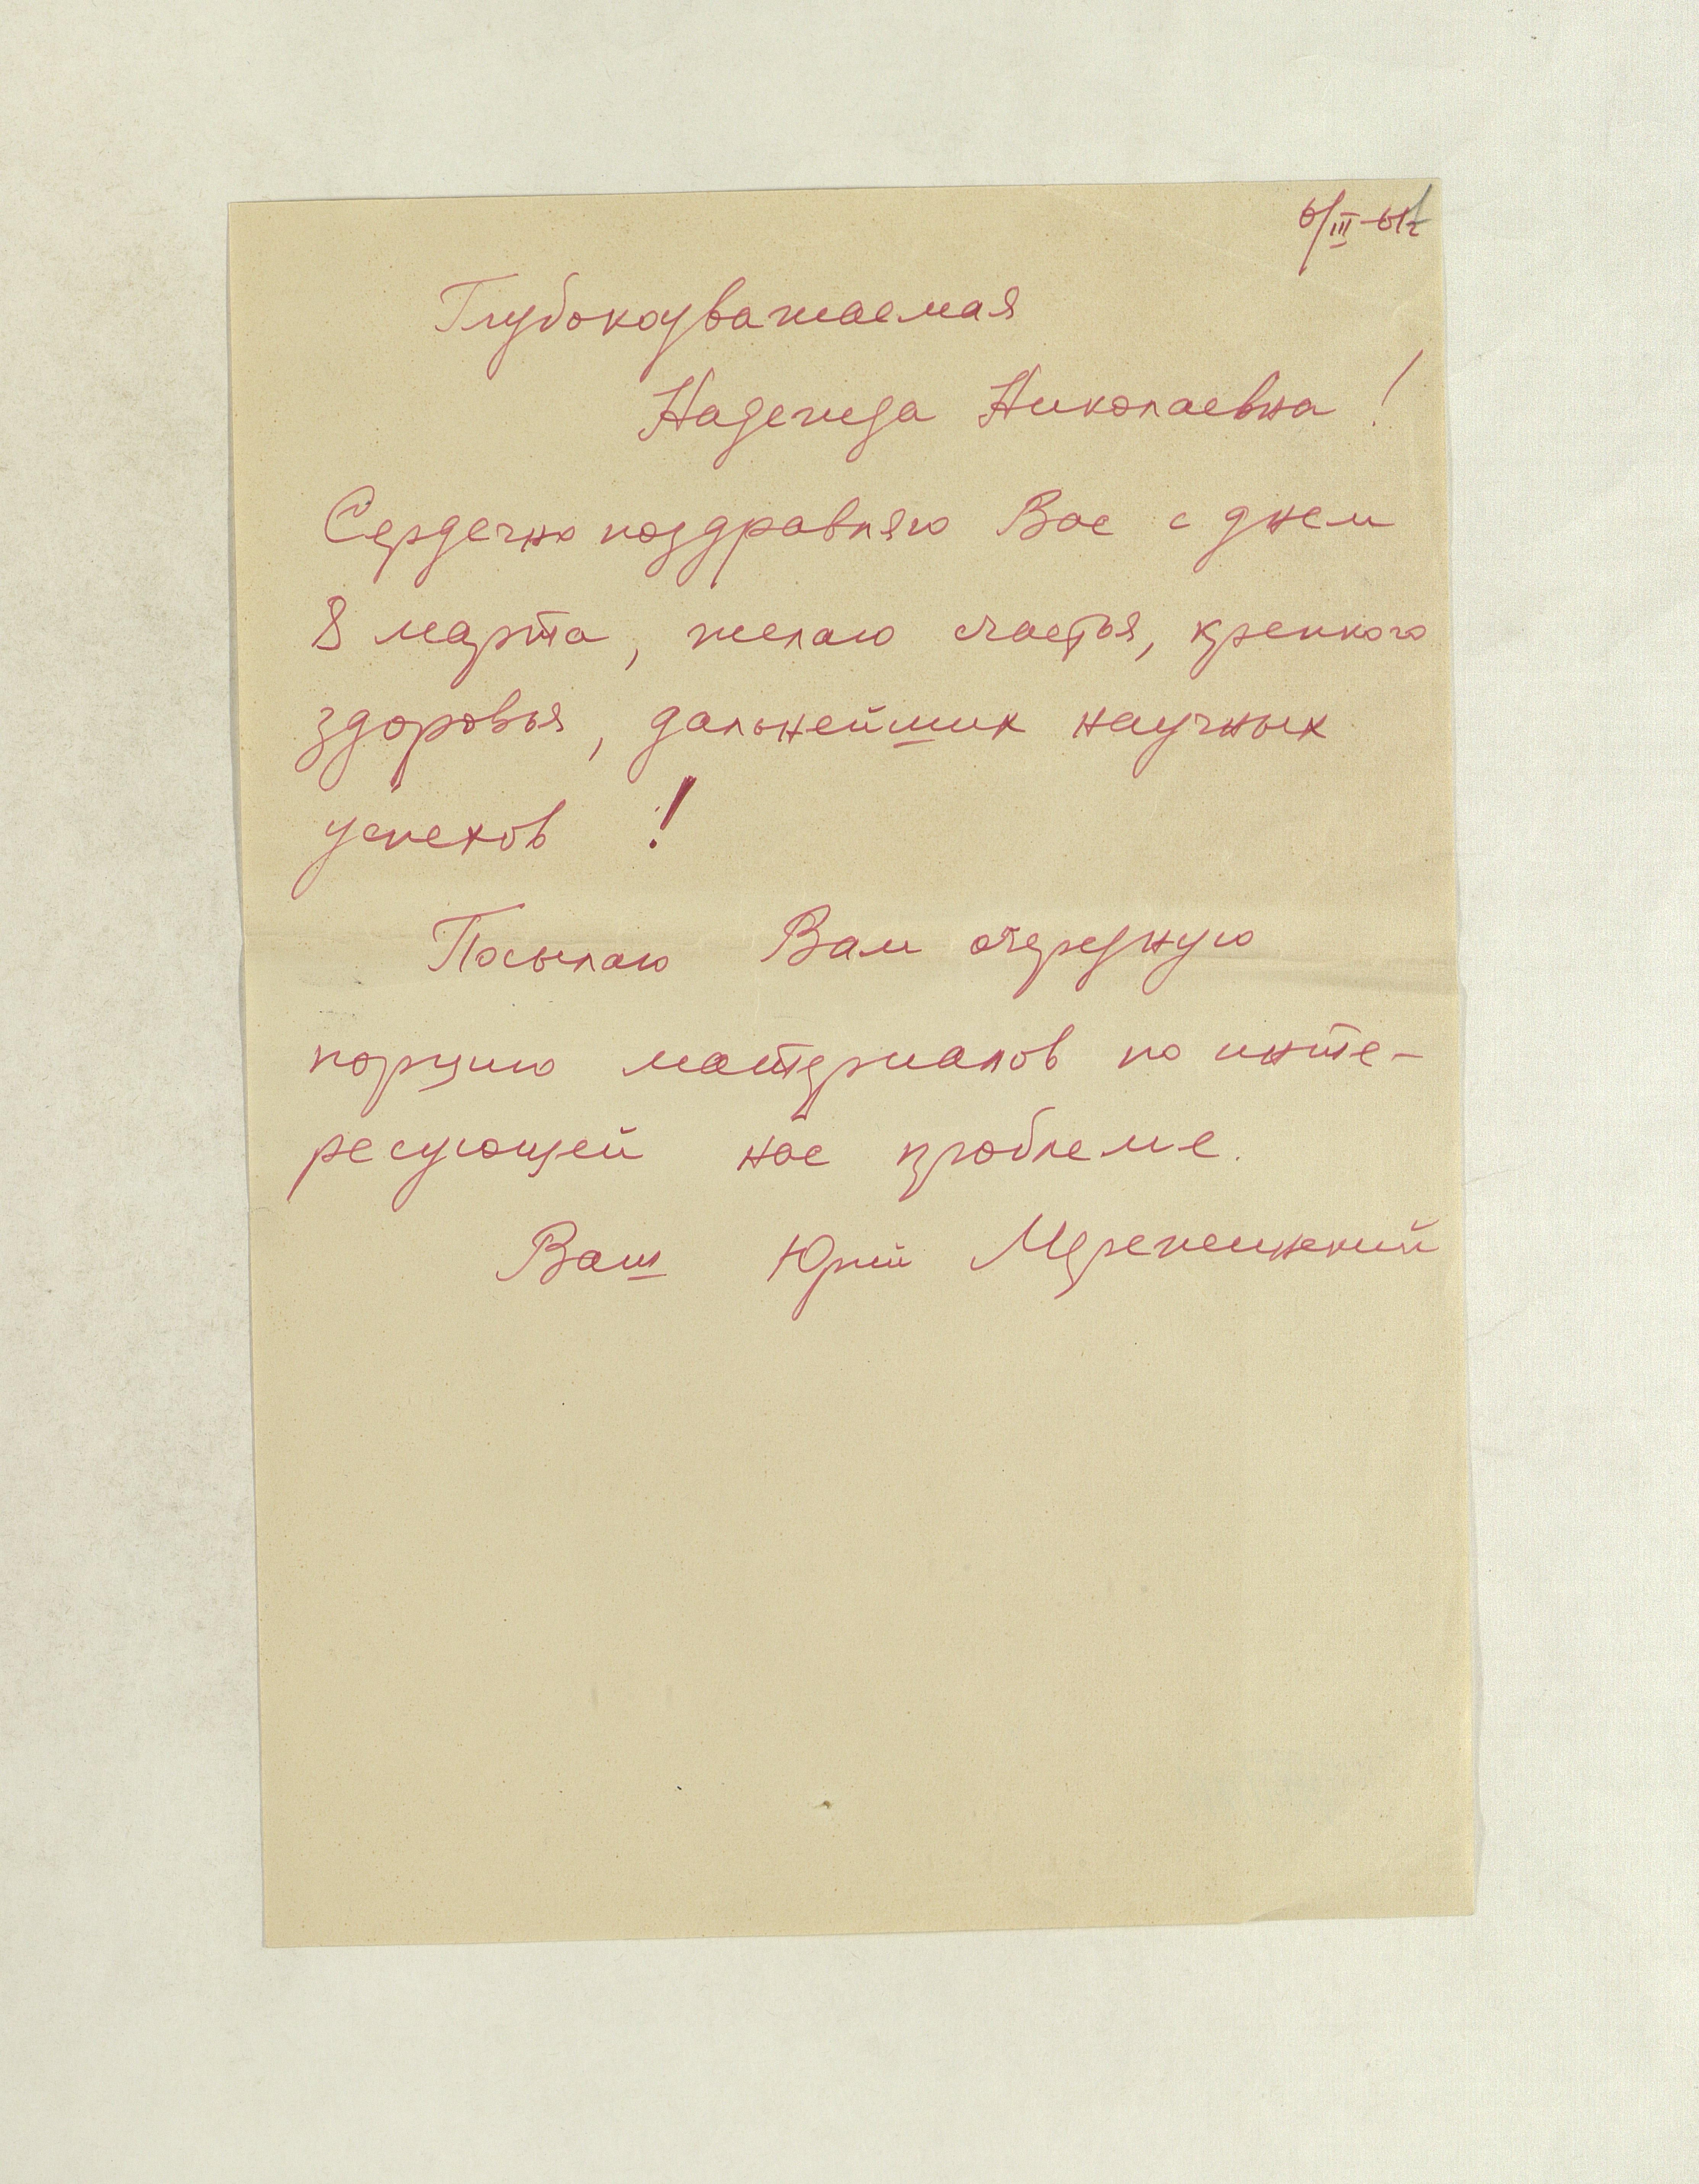 6/III-61г
Глубокоуважаемая
Надежда Николаевна!
Сердечно поздравляю Вас с днем
8 марта, желаю счастья, крепкого
здоровья, дальнейших научных
успехов !
Посылаю Вам очередную
порцию материалов по инте-
ресующей нас проблеме.
Ваш Юрий Мережинский